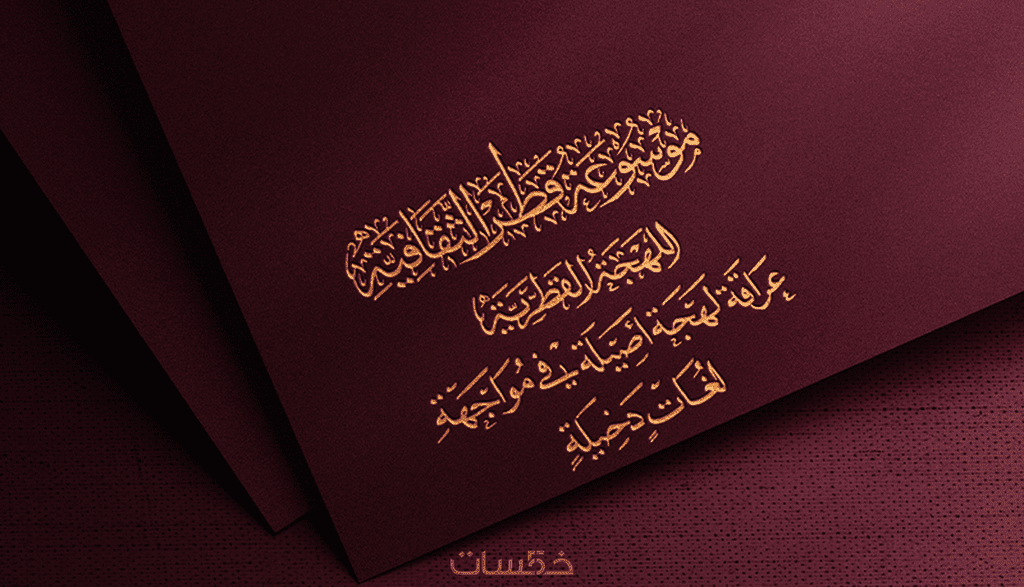 مَوْسُوْعَة قَطَرَ الثَّقَافِيَّة
اللهْجَةُ القَطَرِيَّةُ
عراقة لَهْجَة أَصِيْلَة في مُوَاجَهَةِ
لُغَاتٍ دَخِيلَةٍ
خمسات